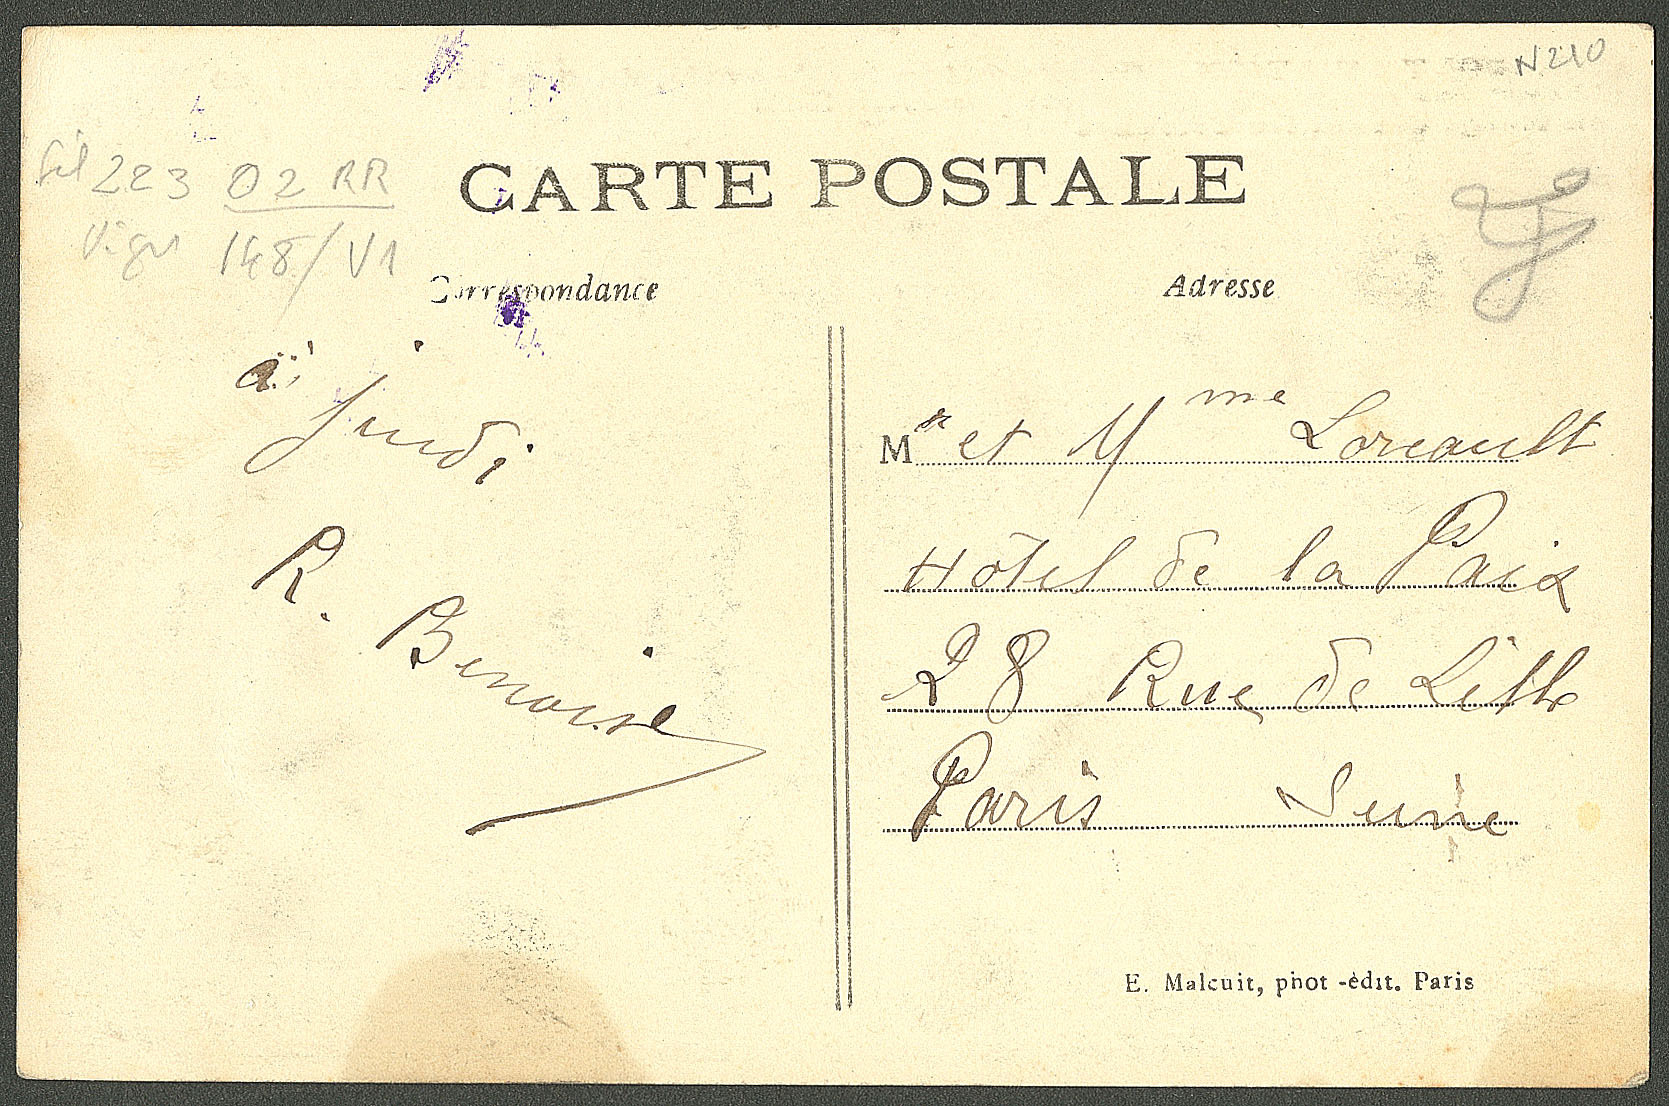 N210
223 02 RR
148/V1
CARTE POSTALE
Correspondance
Adresse
à jeudi
R. Benoise
Mr et Mme Loreault
Hôtel de la Paix
28 Rue de Lille
Paris Seine
E. Malcuit, phot-édit. Paris